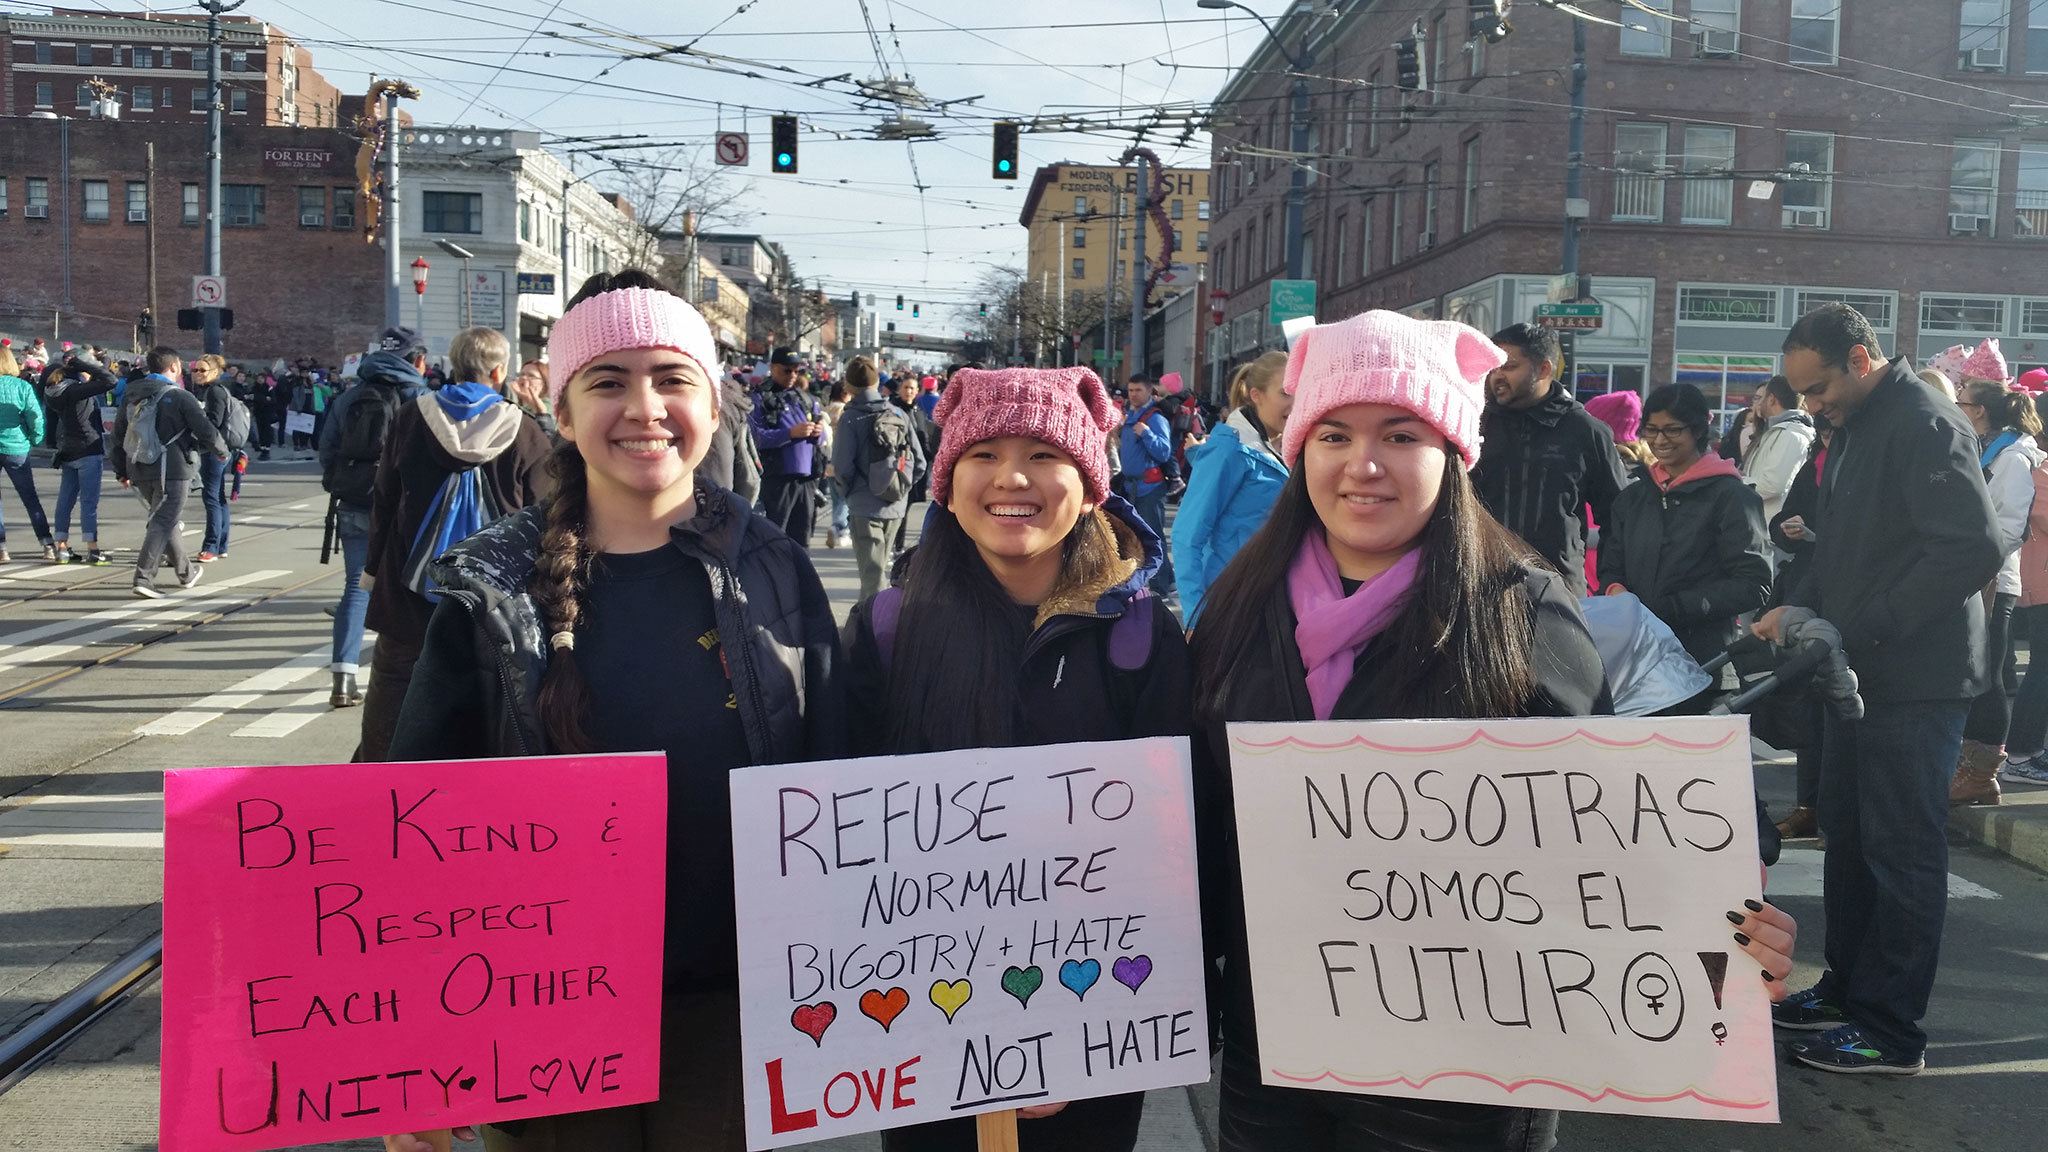 FOR RENT
MODERN
FIREPROOF
UNION
5th Ave S
南第五大道
BE KIND &
RESPECT
EACH OTHER
UNITY♥LOVE
REFUSE TO
NORMALIZE
BIGOTRY + HATE
LOVE NOT HATE
NOSOTRAS
SOMOS EL
FUTURO!